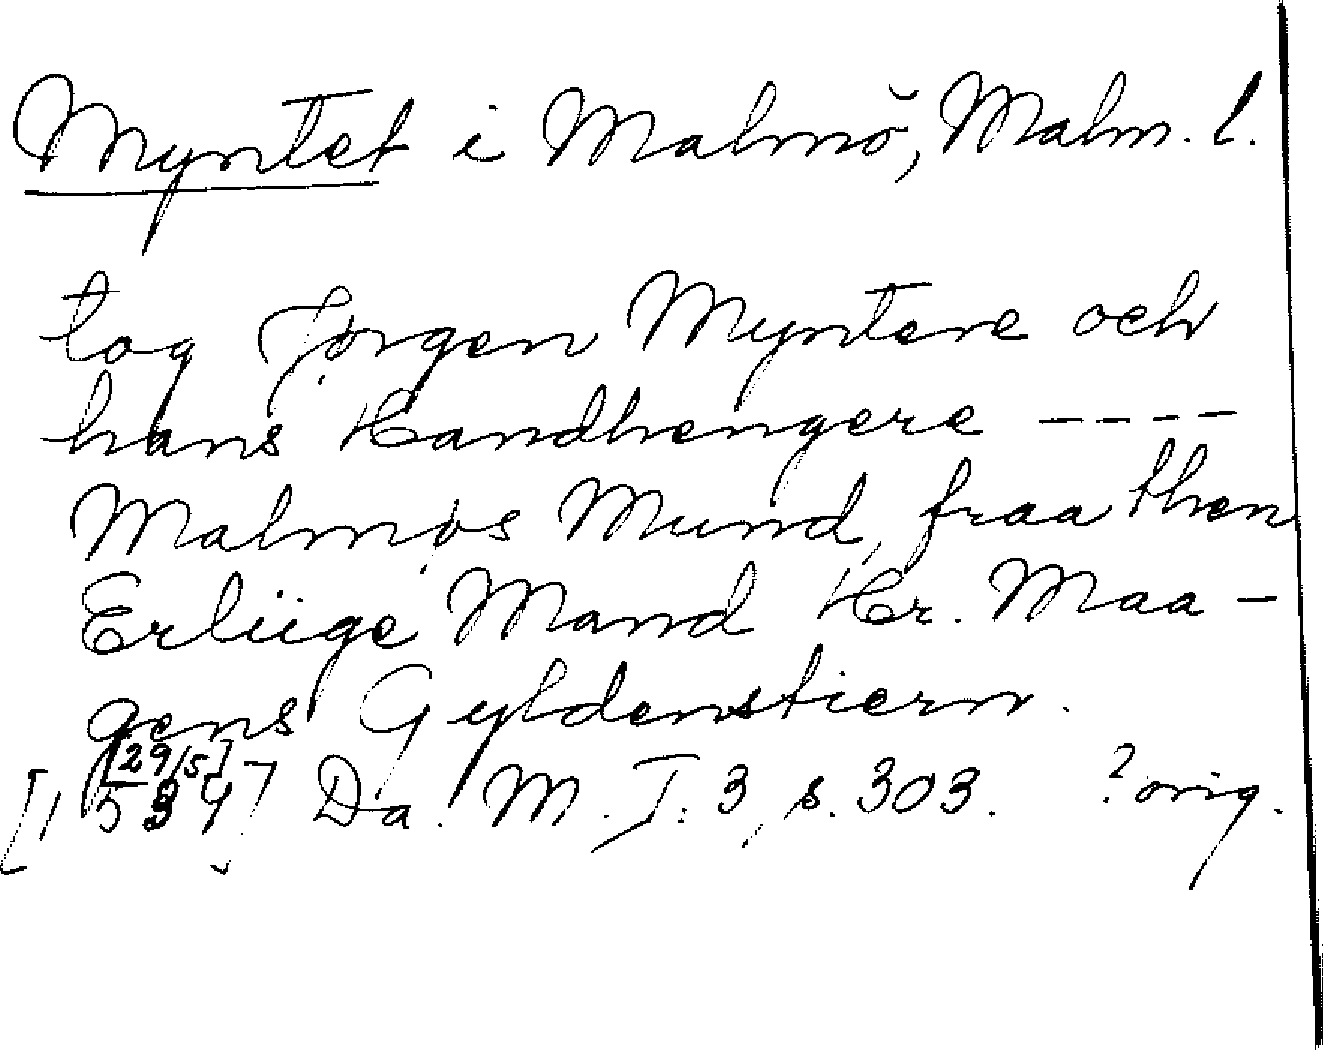 Myntet i Malmö, Malm. l.
tog Jørgen Myntere och
hans Handhengere ----
Malmøs Mund, fraa then
Erliige Mand Hr. Maa-
gens Gyldenstiern.
[29/5]
[1534] Da. M. I: 3, s. 303. ? orig.